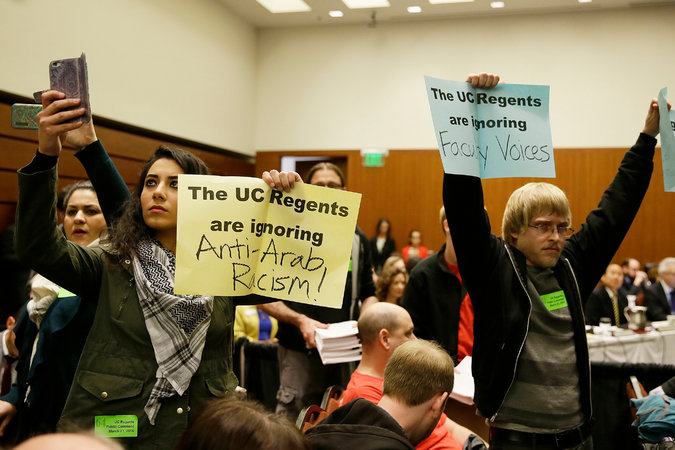 The UC Regents
are ignoring
Anti-Arab
Racism!
The UC Regents
are ignoring
Faculty Voices
UC Regents
Public Comment